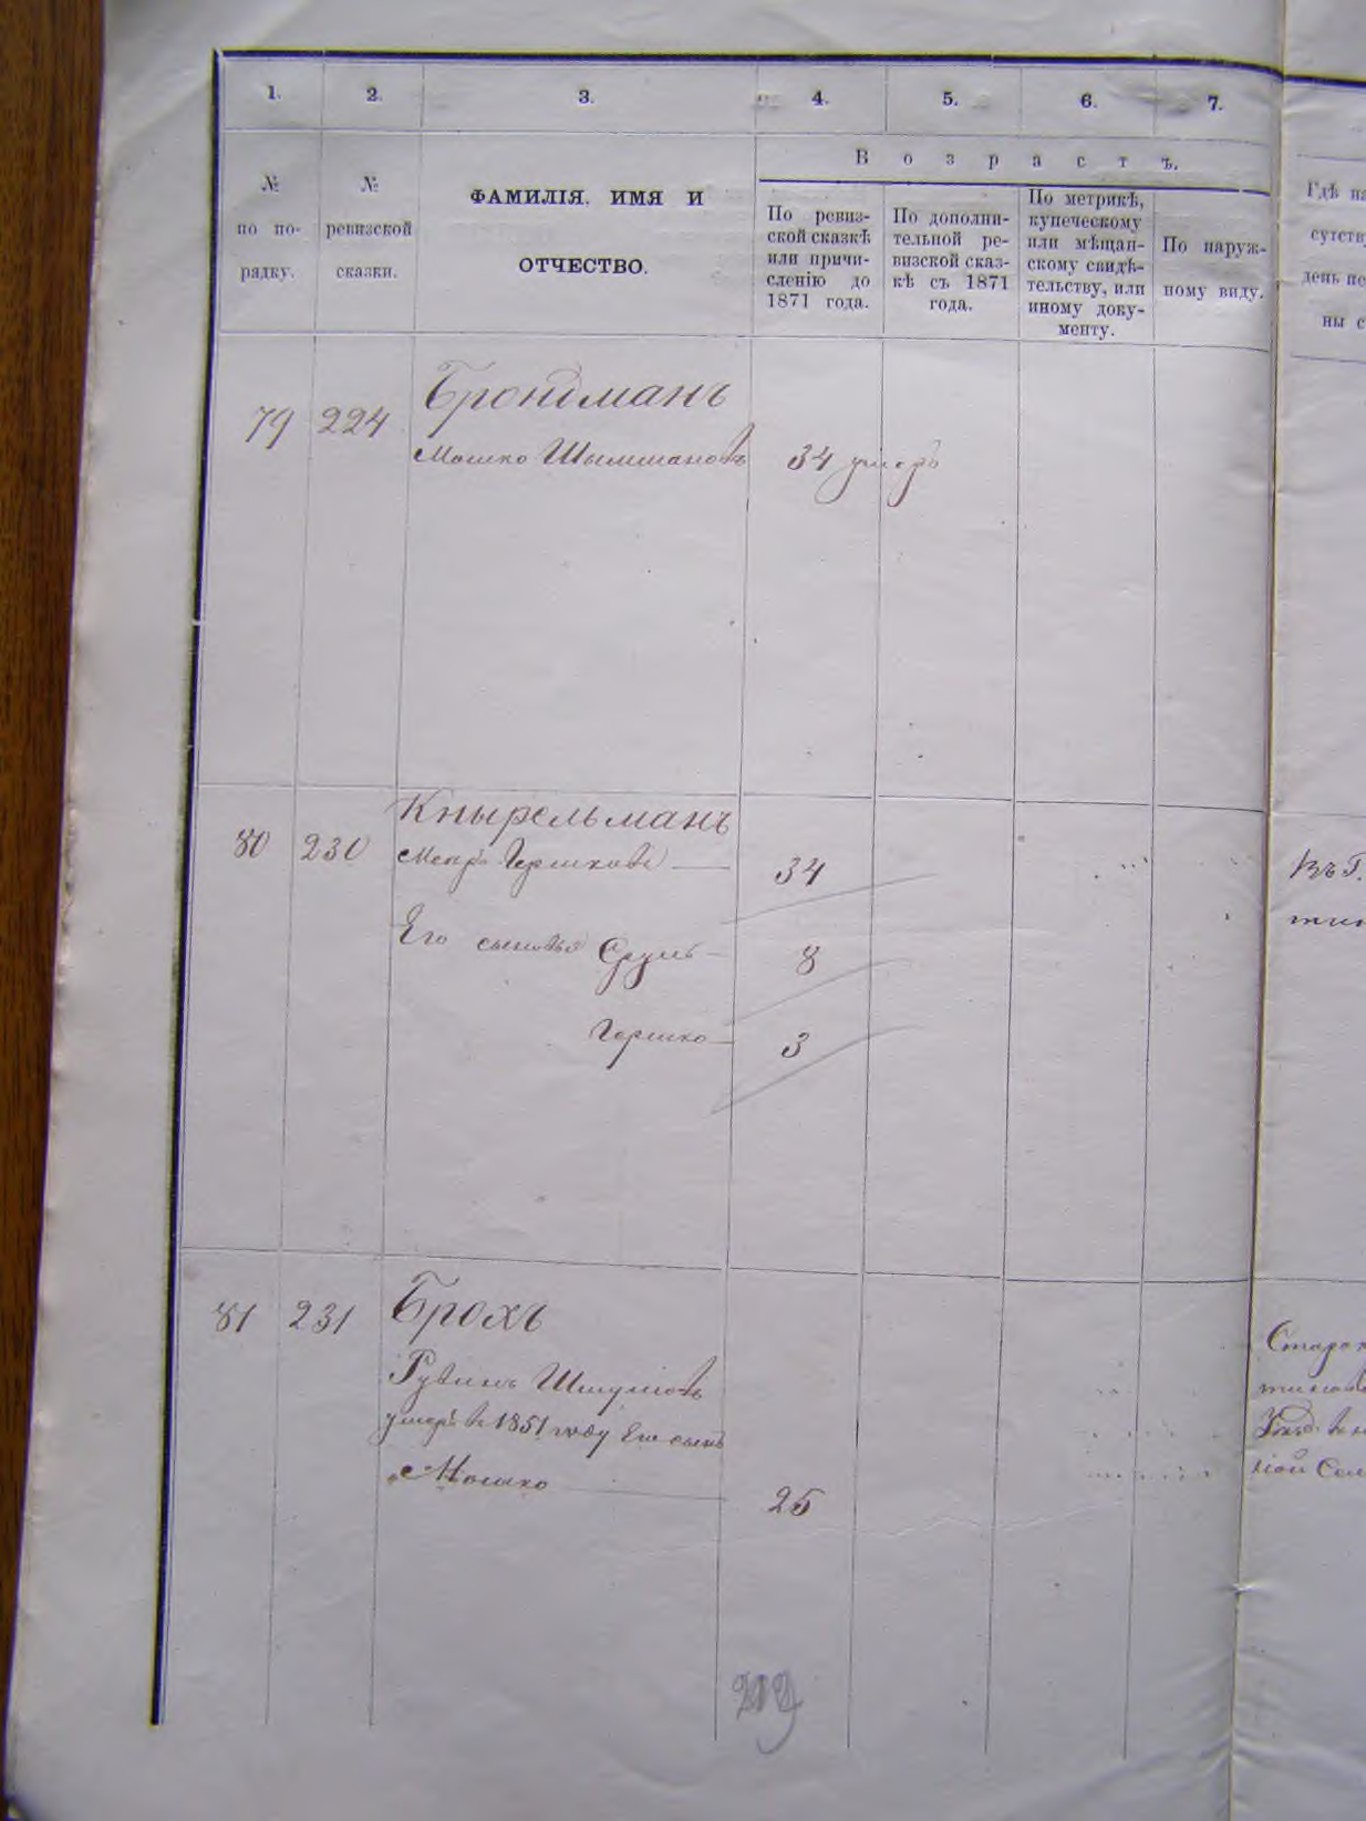 1. 2. 3. 4. 5. 6. 7.
В о з р а с т ъ.
№
по по-
рядку.
№
ревизской
сказки.
ФАМИЛІЯ. ИМЯ И
ОТЧЕСТВО.
По ревиз-
ской сказкѣ
или причи-
сленію до
1871 года.
По дополни-
тельной ре-
визской сказ-
кѣ съ 1871
года.
По метрикѣ,
купеческому
или мѣщан-
скому свидѣ-
тельству, или
иному доку-
менту.
По наруж-
ному виду.
Гдѣ
день
ны
79 224 Брондманъ
Мошко 34 умеръ
80 230 Кнырельманъ
Меер Гершковъ 34
Его сыновья Сруль 8
Гершко 3
81 231 Брохъ
Рувинъ Шмулевъ
умеръ въ 1851 году Его сынъ
Мошко 25
Въ Г.